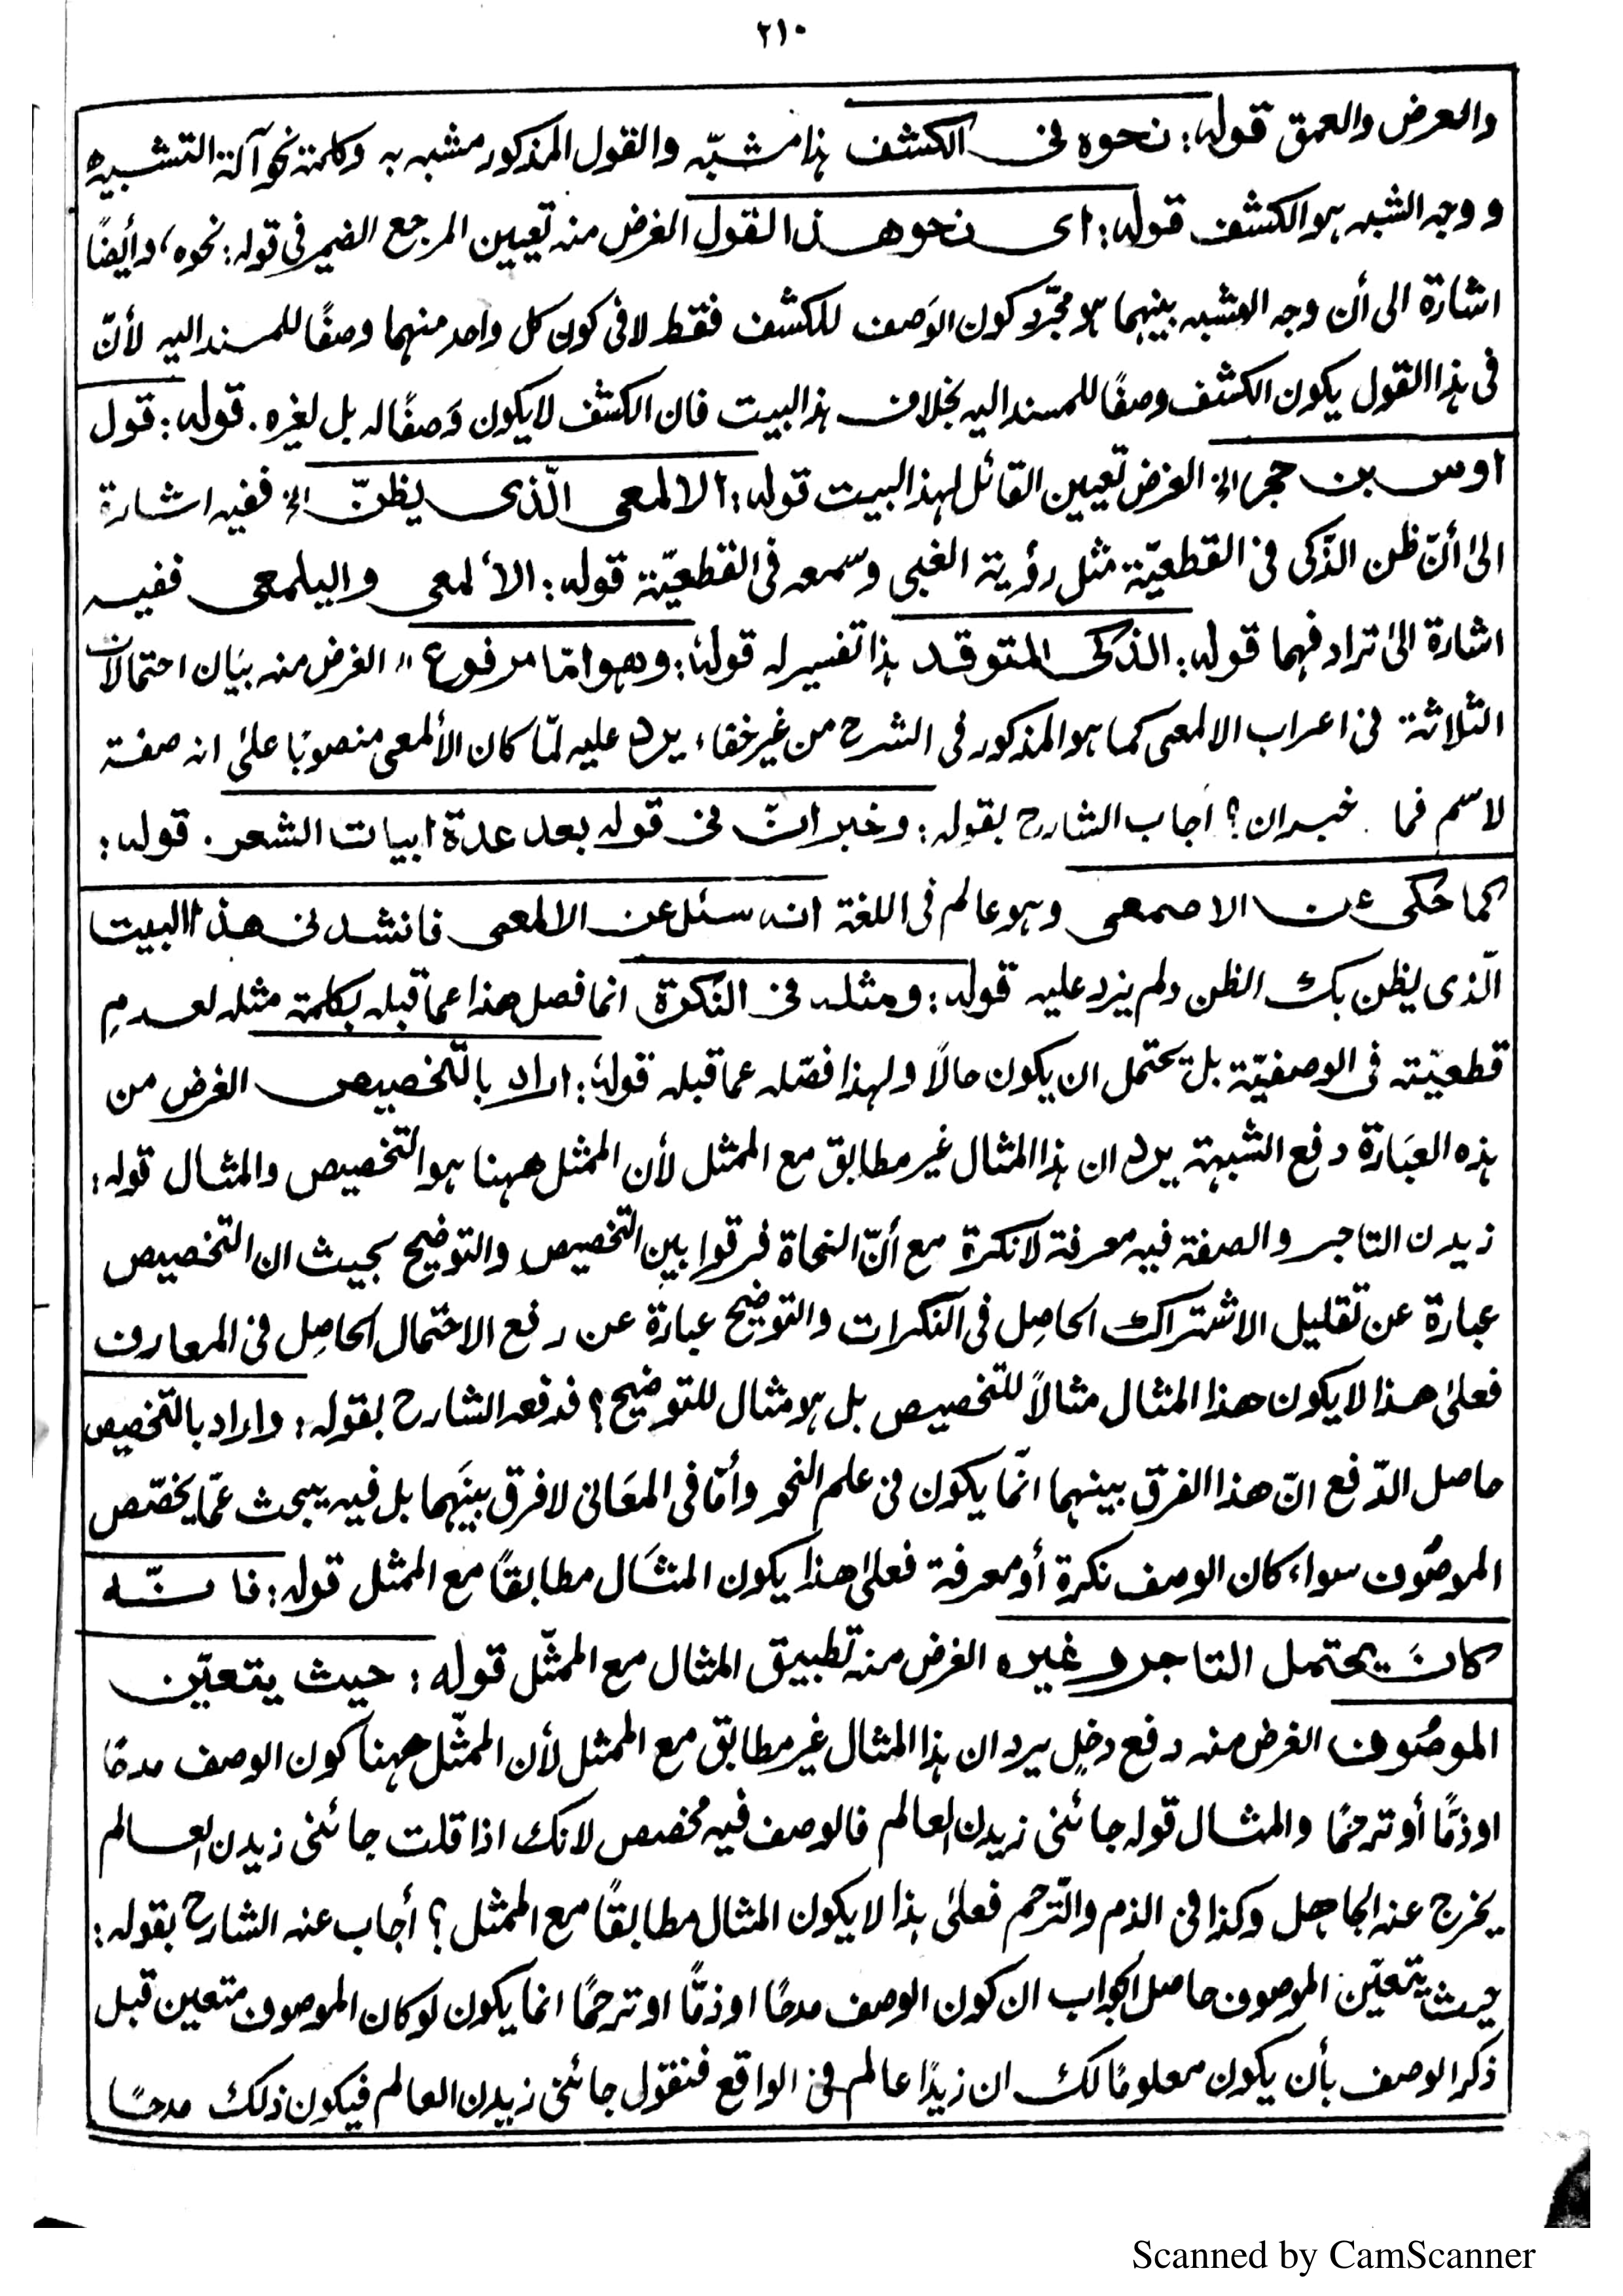 ٢١٠
والعرض والعمق قوله: نحوه فى الكشف هذا مشبّه والقول المذكور مشبه به وكلمة نحو آلة التشبيه
و وجه الشبه هو الكشف قوله: اى نحو هذا القول الغرض منه تعيين المرجع الضمير فى قوله: نحوه، وأيضًا
اشارة الى أن وجه الشبه بينهما هو مجرّد كون الوَصف للكشف فقط لا فى كون كل واحد منهما وصفًا للمسند اليه لأنّ
فى هذا القول يكون الكشف وصفًا للمسند اليه بخلاف هذ البيت فان الكشف لا يكون وَصفًا له بل لغيره. قوله: قول
اوس بن حجر الخ الغرض تعيين القائل لهذ البيت قوله: الالمعى الّذى يظنّ الخ ففيه اشارة
الىٰ أنّ ظن الذّكى فى القطعيّة مثل رؤية الغبى وسمعه فى القطعيّة قوله: الألمعى واليلمعى ففيه
اشارة الىٰ ترادفهما قوله: الذكى المتوقد هذا تفسير له قولهٗ: وهو امّا مرفوع " الغرض منه بيَان احتمالات
الثلاثة فى اعراب الالمعى كما هو المذكور فى الشرح من غير خفاء، يرد عليه لمّا كان الألمعى منصوبًا علىٰ انه صفة
لاسم فما خبر ان؟ اجاب الشارح بقوله: وخبر انّ فى قوله بعد عدة ابيات الشعر. قوله:
كما حُكى عن الاصمعى وهو عالم فى اللغة انه سئل عن الالمعى فانشد فى هذا البيت
الّذى يظن بك الظن ولم يزد عليه قوله: ومثله فى النكرة انما فصل هذا عما قبله بكلمة مثله لعدمِ
قطعيّته فى الوصفيّة بل يحتمل ان يكون حالًا ولهذا فصّله عما قبله قولهٗ: اراد بالتّخصيص الغرض من
هذه العبَارة دفع الشبهة يرد ان هذا المثال غير مطابق مع الممثل لأن الممثل ههنا هو التخصيص والمثال قوله:
زيدن التاجر والصفة فيه معرفة لانكرة مع أنّ النحاة فرقوا بين التخصيص والتوضيح بحيث ان التخصيص
عبارة عن تقليل الاشتراك الحاصِل فى النكرات والتوضيح عبارة عن رفع الاحتمال الحاصِل فى المعارف
فعلىٰ هذا لا يكون هذا المثال مثالاً للتخصيص بل هو مثال للتوضيح؟ فدفعه الشارح بقوله: واراد بالتخصيص
حاصل الدّفع انّ هذا الفرق بينهما انّما يكون فى علم النحو وأمّا فى المعَانى لافرق بينَهما بل فيه يبحث عمّا يخصّص
الموصُوف سواء كان الوصف نكرة أو معرفة فعلىٰ هذا يكون المثَال مطابقًا مع الممثل قوله: فانّه
كانَ يحتمل التاجر وغيره الغرض منه تطبيق المثال مع الممثّل قوله: حيث يتعيّن
الموصُوف الغرض منه دفع دخلٍ يرد ان هذا المثال غير مطابق مع الممثل لأن الممثّل ههنا كون الوصف مدحًا
اوذمًّا أو ترحمًا والمثال قوله جائنى زيدن العالم فالوصف فيه مخصص لانك اذا قلت جائنى زيدن العالم
يخرج عنه الجاهل وكذا فى الذم والتّرحم فعلىٰ هذا لا يكون المثال مطابقًا مع الممثل؟ أجاب عنه الشارح بقوله:
حيث يتعيّن الموصوف حاصل الجواب ان كون الوصف مدحًا اوذمًّا او ترحمًا انما يكون لو كان الموصوف متعين قبل
ذكر الوصف بأن يكون معلومًا لك ان زيدًا عالم فى الواقع فنقول جائنى زيدن العالم فيكون ذلك مدحًا
Scanned by CamScanner